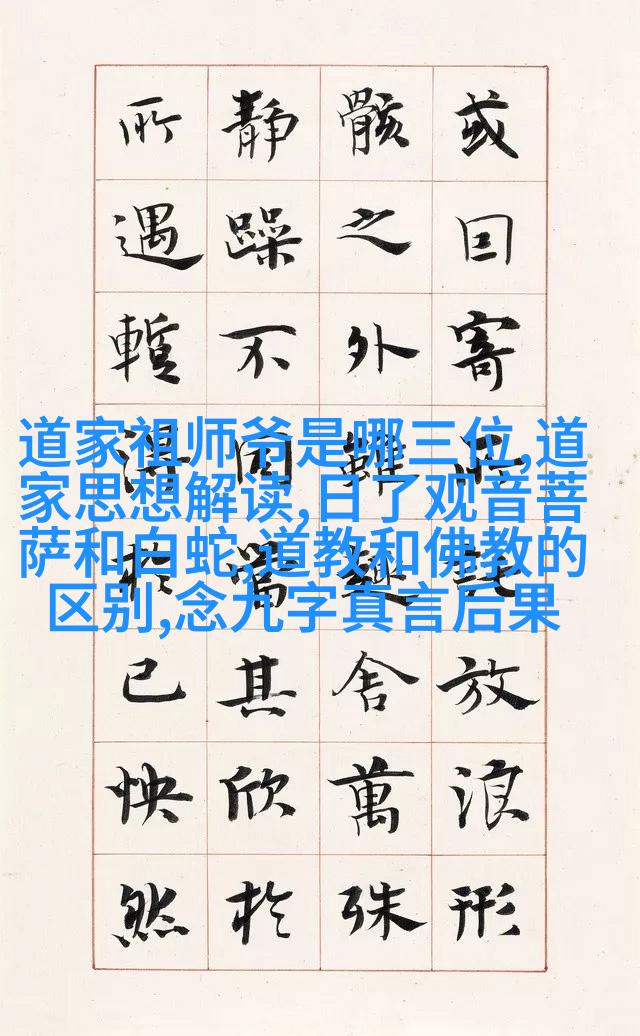 或因寄所託放浪形
骸之外雖趣舍萬殊
靜躁不同當其欣於
所遇暫得於己怏然
道家祖师爷是哪三位,道
家思想解读,日了观音菩
萨和白蛇,道教和佛教的
区别,念九字真言后果